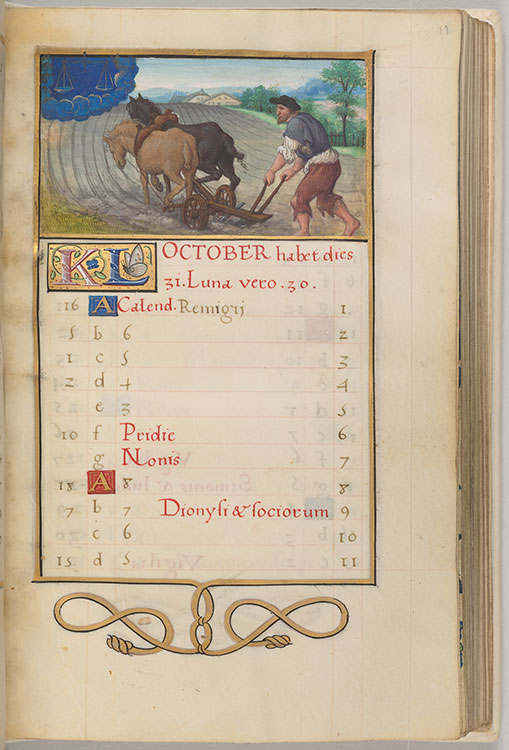 KL OCTOBER habet dies
31. Luna vero. 30.
16 A Calend. Remigij 1.
5 b 6 2
c 5 3
2 d 4 4
e 3 5
10 f Pridie 6
g Nonis 7
18 A 8 8
7 b 7 Dionysi & sociorum 9
c 6 10
15 d 5 11